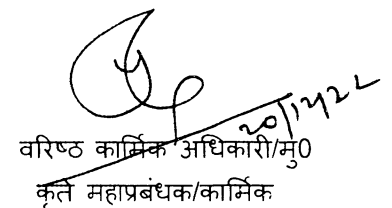 20/12/22
वरिष्ठ कार्मिक अधिकारी/मु0
कृते महाप्रबंधक/कार्मिक